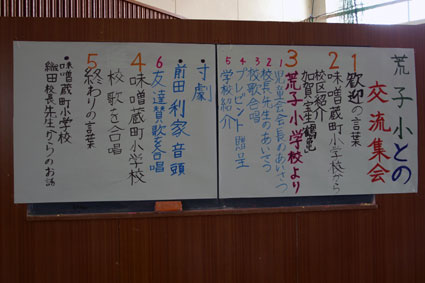 荒子小との
交流集会
1 歓迎の言葉
2 味噌蔵町小学校から
校区紹介
加賀宝生「鶴亀」
3 荒子小学校より
1 児童会会長のあいさつ
2 校長先生のあいさつ
3 校歌合唱
4 プレゼント贈呈
5 学校紹介
・寸劇
・前田利家音頭
6 友達賛歌を合唱
4 味噌蔵町小学校
校歌を合唱
5 終わりの言葉
・味噌蔵町小学校
織田校長先生からのお話